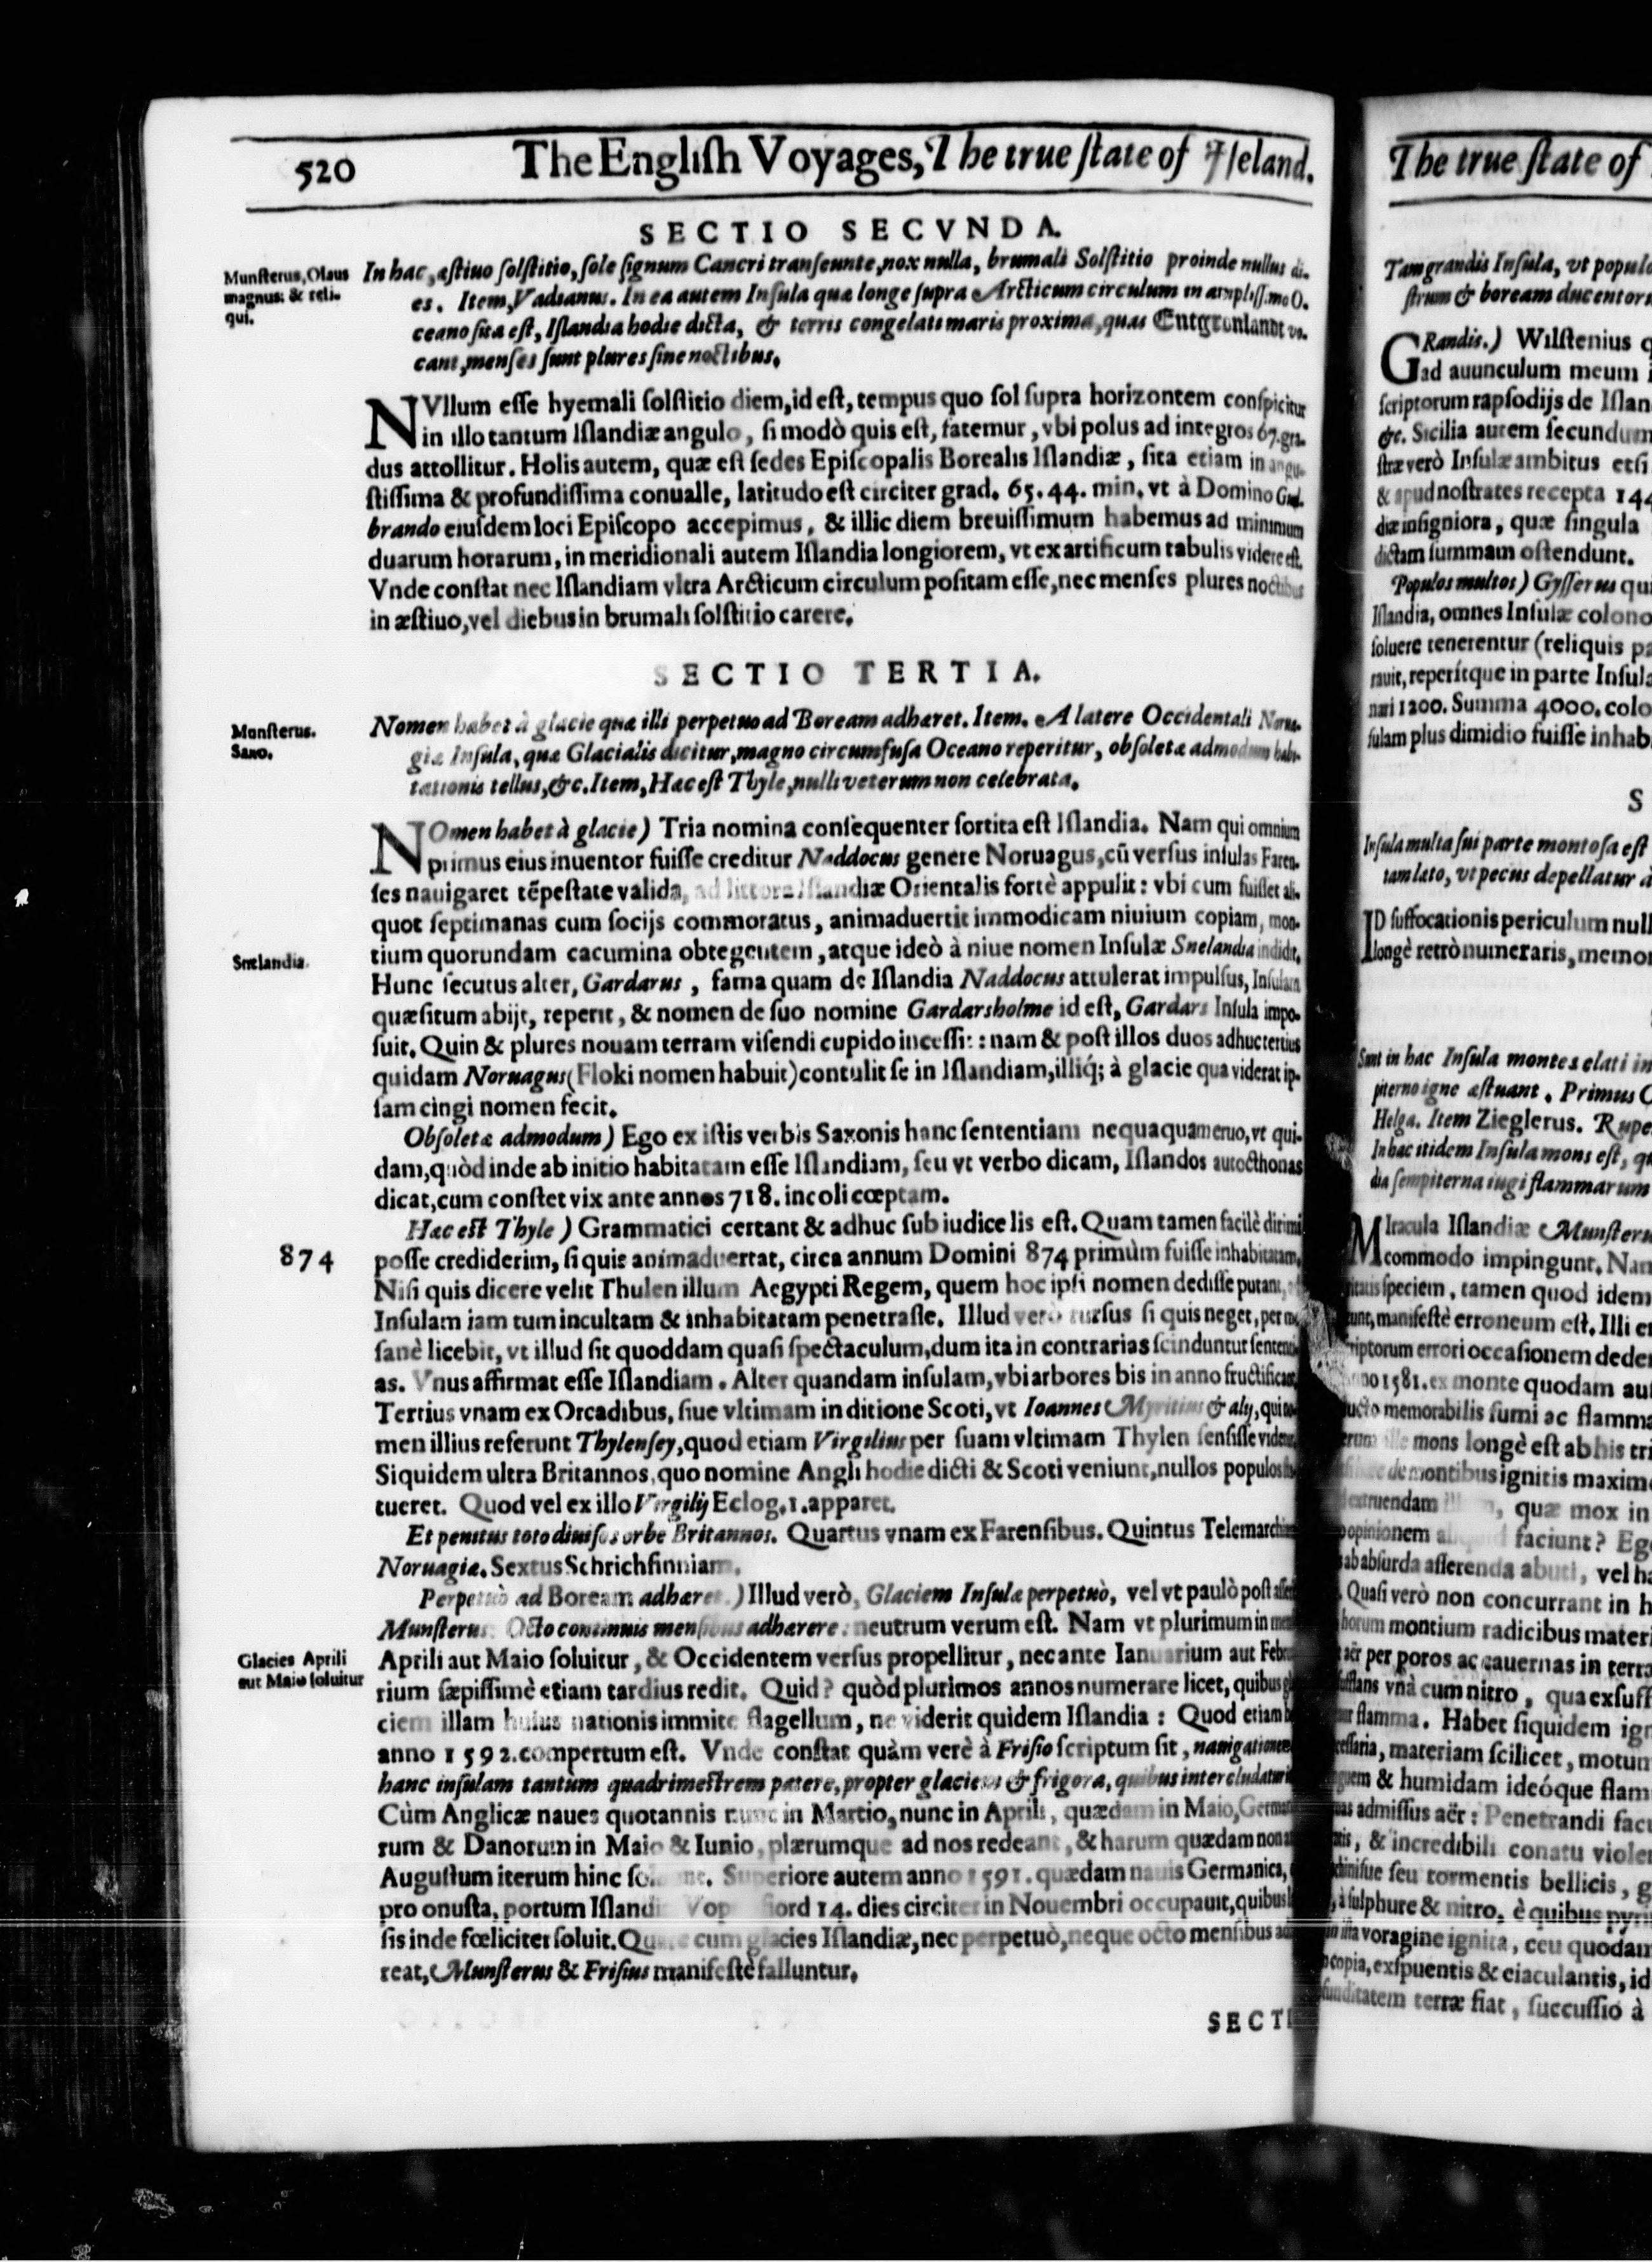 520
The Engliſh Voyages, The true ſtate of Iſeland.
SECTIO SECVNDA.
Munſterus, Olaus
magnus: & reli-
qui.
In hac, æſtiuo ſolſtitio, ſole ſignum Cancri tranſeunte, nox nulla, brumali Solſtitio proinde nullus di-
es. Item, Vadianus. In ea autem Inſula quæ longe ſupra Arcticum circulum in ampliſſimo O-
ceano ſita eſt, Iſlandia hodie dicta, & terris congelati maris proxima, quas Entgronlandt vo-
cant, menſes ſunt plures ſine noctibus.
NVllum eſſe hyemali ſolſtitio diem, id eſt, tempus quo ſol ſupra horizontem conſpicitur
in illo tantum Iſlandiæ angulo, ſi modò quis eſt, fatemur, vbi polus ad integros 67. gra-
dus attollitur. Holis autem, quæ eſt ſedes Epiſcopalis Borealis Iſlandiæ, ſita etiam in angu-
ſtiſſima & profundiſſima conualle, latitudo eſt circiter grad. 65. 44. min. vt à Domino Gud-
brando eiuſdem loci Epiſcopo accepimus, & illic diem breuiſſimum habemus ad minimum
duarum horarum, in meridionali autem Iſlandia longiorem, vt ex artificum tabulis videre eſt.
Vnde conſtat nec Iſlandiam vltra Arcticum circulum poſitam eſſe, nec menſes plures noctibus
in æſtiuo, vel diebus in brumali ſolſtitio carere.
SECTIO TERTIA.
Munſterus.
Saxo.
Nomen habet à glacie quæ illi perpetuo ad Boream adhæret. Item. A latere Occidentali Norua-
giæ Inſula, quæ Glacialis dicitur, magno circumfuſa Oceano reperitur, obſoletæ admodum habi-
tationis tellus, &c. Item, Hæc eſt Thyle, nulli veterum non celebrata.
NOmen habet à glacie) Tria nomina conſequenter ſortita eſt Iſlandia. Nam qui omnium
primus eius inuentor fuiſſe creditur Naddocus genere Noruagus, cū verſus inſulas Faren-
ſes nauigaret tēpeſtate valida, ad littora Iſlandiæ Orientalis fortè appulit: vbi cum fuiſſet ali-
quot ſeptimanas cum ſocijs commoratus, animaduertit immodicam niuium copiam, mon-
tium quorundam cacumina obtegentem, atque ideò à niue nomen Inſulæ Snelandia indidit.
Snelandia.
Hunc ſecutus alter, Gardarus, fama quam de Iſlandia Naddocus attulerat impulſus, Inſulam
quæſitum abijt, reperit, & nomen de ſuo nomine Gardarsholme id eſt, Gardars Inſula impo-
ſuit. Quin & plures nouam terram viſendi cupido inceſſit: nam & poſt illos duos adhuc tertius
quidam Noruagus (Floki nomen habuit) contulit ſe in Iſlandiam, illiq́; à glacie qua viderat ip-
ſam cingi nomen fecit.
Obſoletæ admodum) Ego ex iſtis verbis Saxonis hanc ſententiam nequaquam eruo, vt qui-
dam, quòd inde ab initio habitatam eſſe Iſlandiam, ſeu vt verbo dicam, Iſlandos autocthonas
dicat, cum conſtet vix ante annos 718. incoli cœptam.
Hæc eſt Thyle) Grammatici certant & adhuc ſub iudice lis eſt. Quam tamen facilè dirimi
874
poſſe crediderim, ſi quis animaduertat, circa annum Domini 874 primùm fuiſſe inhabitatam.
Niſi quis dicere velit Thulen illum Aegypti Regem, quem hoc ipſi nomen dediſſe putant,
Inſulam iam tum incultam & inhabitatam penetraſſe. Illud verò rurſus ſi quis neget, per me
ſanè licebit, vt illud ſit quoddam quaſi ſpectaculum, dum ita in contrarias ſcinduntur ſententi-
as. Vnus affirmat eſſe Iſlandiam. Alter quandam inſulam, vbi arbores bis in anno fructificant.
Tertius vnam ex Orcadibus, ſiue vltimam in ditione Scoti, vt Ioannes Myritius & alij, qui no-
men illius referunt Thylenſey, quod etiam Virgilius per ſuam vltimam Thylen ſenſiſſe videtur.
Siquidem ultra Britannos, quo nomine Angli hodie dicti & Scoti veniunt, nullos populos
tueret. Quod vel ex illo Virgilij Eclog. 1. apparet.
Et penitus toto diuiſos orbe Britannos. Quartus vnam ex Farenſibus. Quintus Telemarchiam
Noruagiæ. Sextus Schrichfinniam.
Perpetuò ad Boream adhæret.) Illud verò, Glaciem Inſulæ perpetuò, vel vt paulò poſt
Munſterus: Octo continuis menſibus adhærere: neutrum verum eſt. Nam vt plurimum in menſe
Glacies Aprili
aut Maio ſoluitur
Aprili aut Maio ſoluitur, & Occidentem verſus propellitur, nec ante Ianuarium aut Febru-
rium ſæpiſſimè etiam tardius redit. Quid? quòd plurimos annos numerare licet, quibus gla-
ciem illam huius nationis immite flagellum, ne viderit quidem Iſlandia: Quod etiam
anno 1592. compertum eſt. Vnde conſtat quàm verè à Friſio ſcriptum ſit, nauigationem
hanc inſulam tantum quadrimeſtrem patere, propter glaciem & frigora, quibus intercludatur
Cùm Anglicæ naues quotannis nunc in Martio, nunc in Aprili, quædam in Maio, Germano-
rum & Danorum in Maio & Iunio, plærumque ad nos redeant, & harum quædam non
Auguſtum iterum hinc Superiore autem anno 1591. quædam nauis Germanica,
pro onuſta, portum Iſlandiæ Vopnafiord 14. dies circiter in Nouembri occupauit, quibus
ſis inde fœliciter ſoluit. Quare cum glacies Iſlandiæ, nec perpetuò, neque octo menſibus
reat, Munſterus & Friſius manifeſtè falluntur.
SECTI
The true ſtate of
Tam grandis Inſula, vt populo
ſtrum & boream ducentoru
GRandis.) Wilſtenius q
ad auunculum meum
ſcriptorum rapſodijs de Iſlan
&c. Sicilia autem ſecundum
ſtræ verò Inſulæ ambitus etſi
& apud noſtrates recepta 144
diæ inſigniora, quæ ſingula
dictam ſummam oſtendunt.
Populos multos) Gyſſerus qui
Iſlandia, omnes Inſulæ colono
ſoluere tenerentur (reliquis pa
rauit, reperitque in parte Inſula
nari 1200. Summa 4000. colo
ſulam plus dimidio fuiſſe inhab
S
Inſula multa ſui parte montoſa eſt
tam lato, vt pecus depellatur à
ID ſuffocationis periculum null
longè retrò numeraris, memor
Sunt in hac Inſula montes elati in
piterno igne æſtuant. Primus
Helga. Item Zieglerus. Rupe
In hac itidem Inſula mons eſt, qu
dia ſempiterna iugi flammarum
MIracula Iſlandiæ Munſteru
commodo impingunt. Nam
ſpeciem, tamen quod idem
manifeſtè erroneum eſt. Illi et
errori occaſionem deder
1581. ex monte quodam auſ
memorabilis fumi ac flamma
mons longè eſt ab his tri
de montibus ignitis maxime
quæ mox in
opinionem faciunt? Ego
ab abſurda aſſerenda abuti, vel ha
Quaſi verò non concurrant in h
horum montium radicibus materi
aër per poros ac cauernas in terra
vnà cum nitro, qua exſuff
flamma. Habet ſiquidem ign
materiam ſcilicet, motum
& humidam ideóque flam
admiſſus aër: Penetrandi facu
& incredibili conatu violen
ſeu tormentis bellicis, g
à ſulphure & nitro, è quibus pyri
voragine ignita, ceu quodam
copia, exſpuentis & eiaculantis, id
terræ fiat, ſuccuſſio à